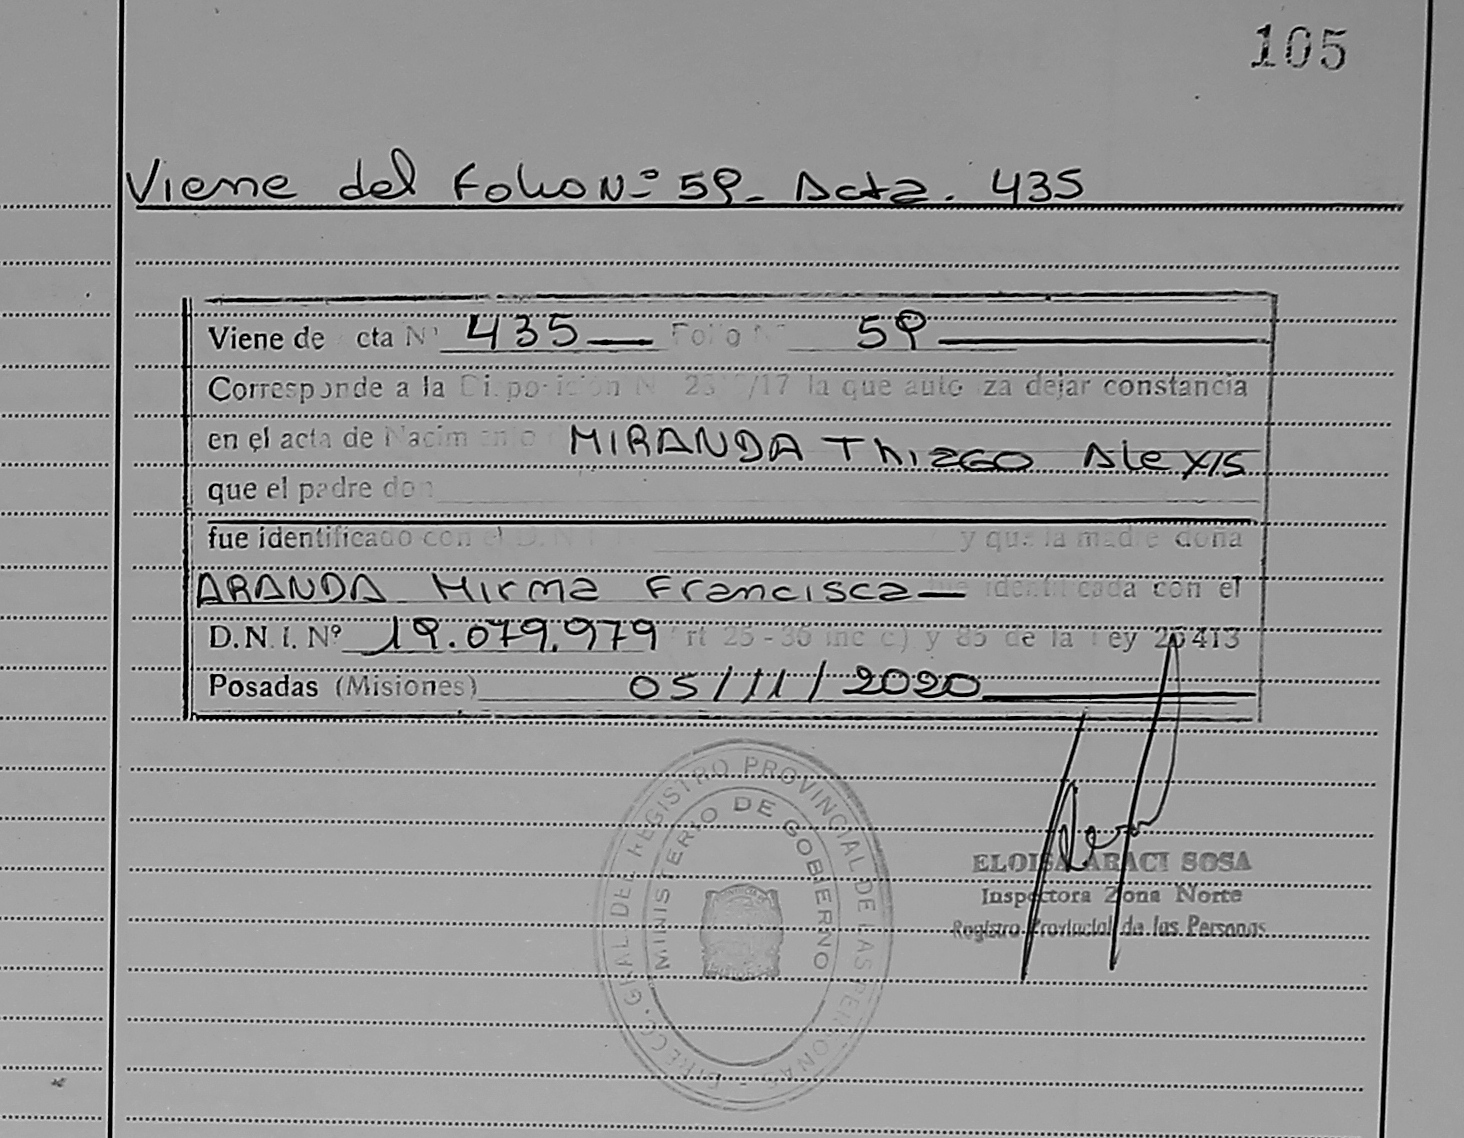 105
Viene del Folio Nº 59- Acta. 435
Viene de cta Nº 435 Folio Nº 59
Corresponde a la Disposición N 23 /17 la que auto za dejar constancia
en el acta de Nacimiento MIRANDA Thiago Alexis
que el padre don
fue identificado con el D.N.I. N y que la madre doña
ARANDA Mirna Francisca identificada con el
D.N.I. Nº 19.079.979 rt 25 - 36 inc c) y 85 de la ley 26413
Posadas (Misiones) 05/11/2020
DIRECC. GRAL. DEL REGISTRO PROVINCIAL DE LAS PERSONAS
MINISTERIO DE GOBIERNO
ELOISA ARACI SOSA
Inspectora Zona Norte
Registro Provincial de las Personas